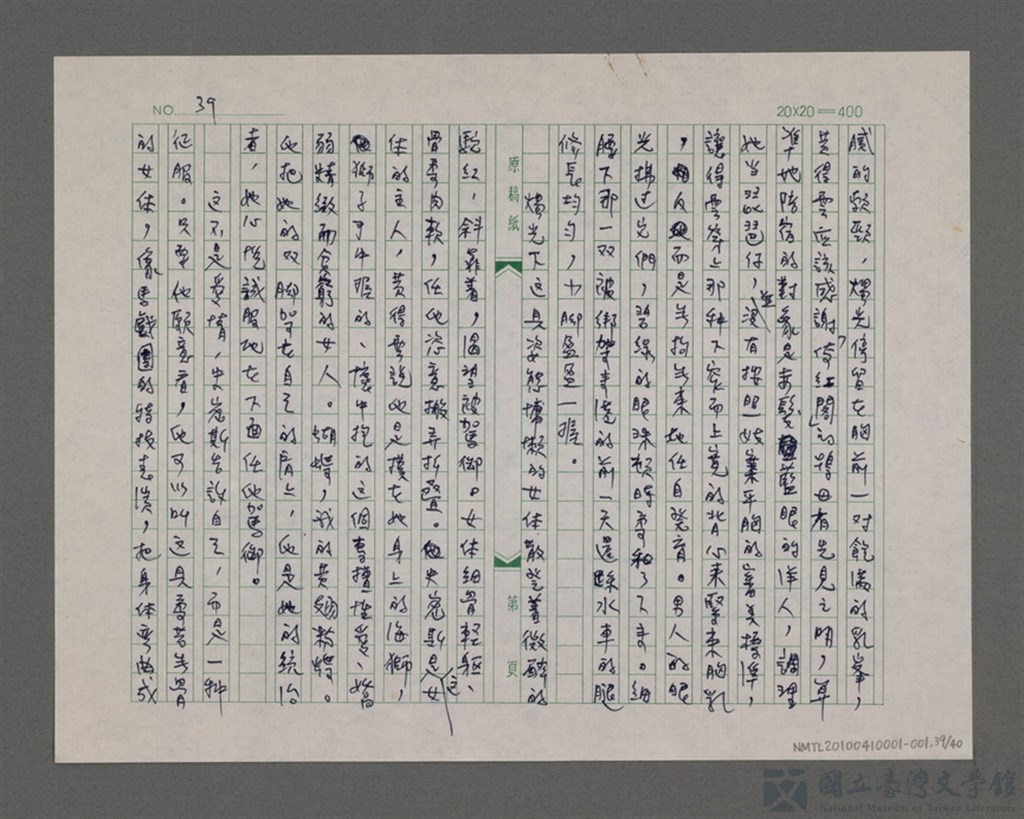 NO. 39
20X20=400
膩的頸項，燭光停留在胸前一對飽滿的乳峯，
黃得雲应該感謝「倚紅閣」的鴇母有先見之明，算
準她陪宿的對象是赤髮藍眼的洋人，調理
她当琵琶仔，並沒有按照一妓業平胸的審美標準，
讓得雲穿上那种下窄而上寬的背心來緊束胸乳
，反而是無拘無束地任自發育。男人的眼
光掃过它們，碧綠的眼珠頓時柔和了下來。細
腰下那一双被綁架來港的前一天還踩水車的腿
修長均勻，小脚盈盈一握。
燭光下這具姿態慵懶的女体散發着微醉的
酡紅，斜靠着，渴望被駕御。女体細骨輕軀、
骨柔肉軟，任他恣意搬弄折疊。史密斯是這女
体的主人，黃得雲說他是撲在她身上的海獅，
獅子手中握的、懷中抱的這個專擅性愛、嬌
弱精緻而貧窮的女人。蝴蝶，我的黃翅粉蝶。
他把她的双脚架在自己的肩上，他是她的統治
者，她心悅誠服地在下面任他駕御。
這不是愛情，史密斯告訴自己，而是一种
征服。只要他願意看，他可以叫這具柔若無骨
的女体，像馬戲團的特技表演，把身体弯曲成
原稿紙
第 頁
NMTL20100410001-001.39/40
國立臺灣文學館
National Museum of Taiwan Literature